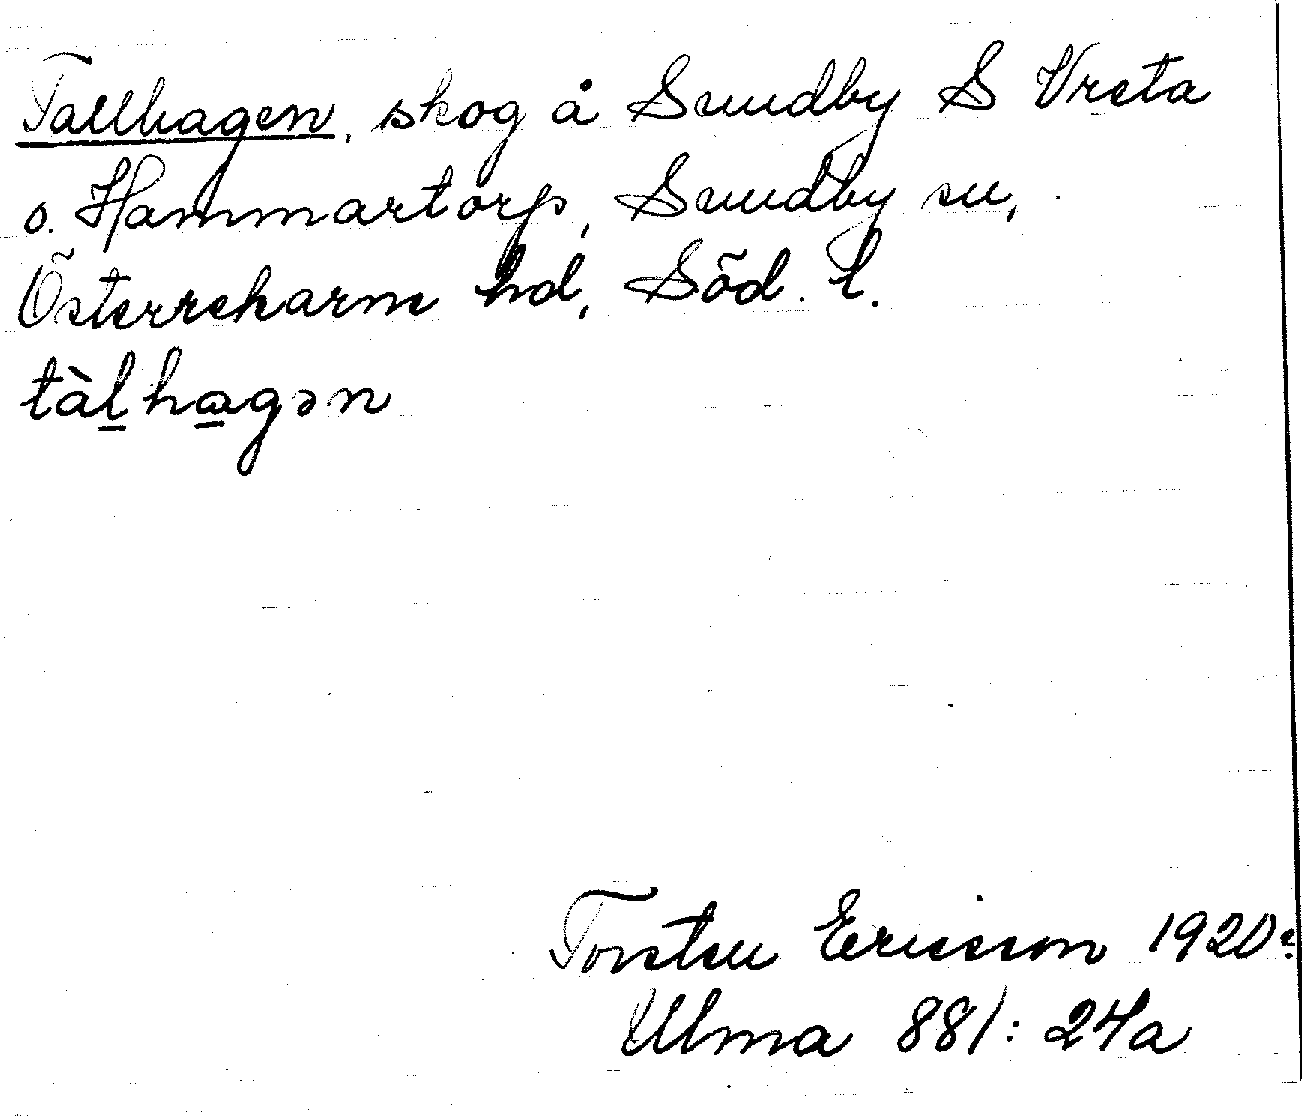 Tallhagen, skog å Sundby S Vreta
o. Hammartorp, Sundby sn,
Österrekarne hd, Söd. l.
tàl̲ha̲gən
Torsten Ericsson 1920
Ulma 881: 24a